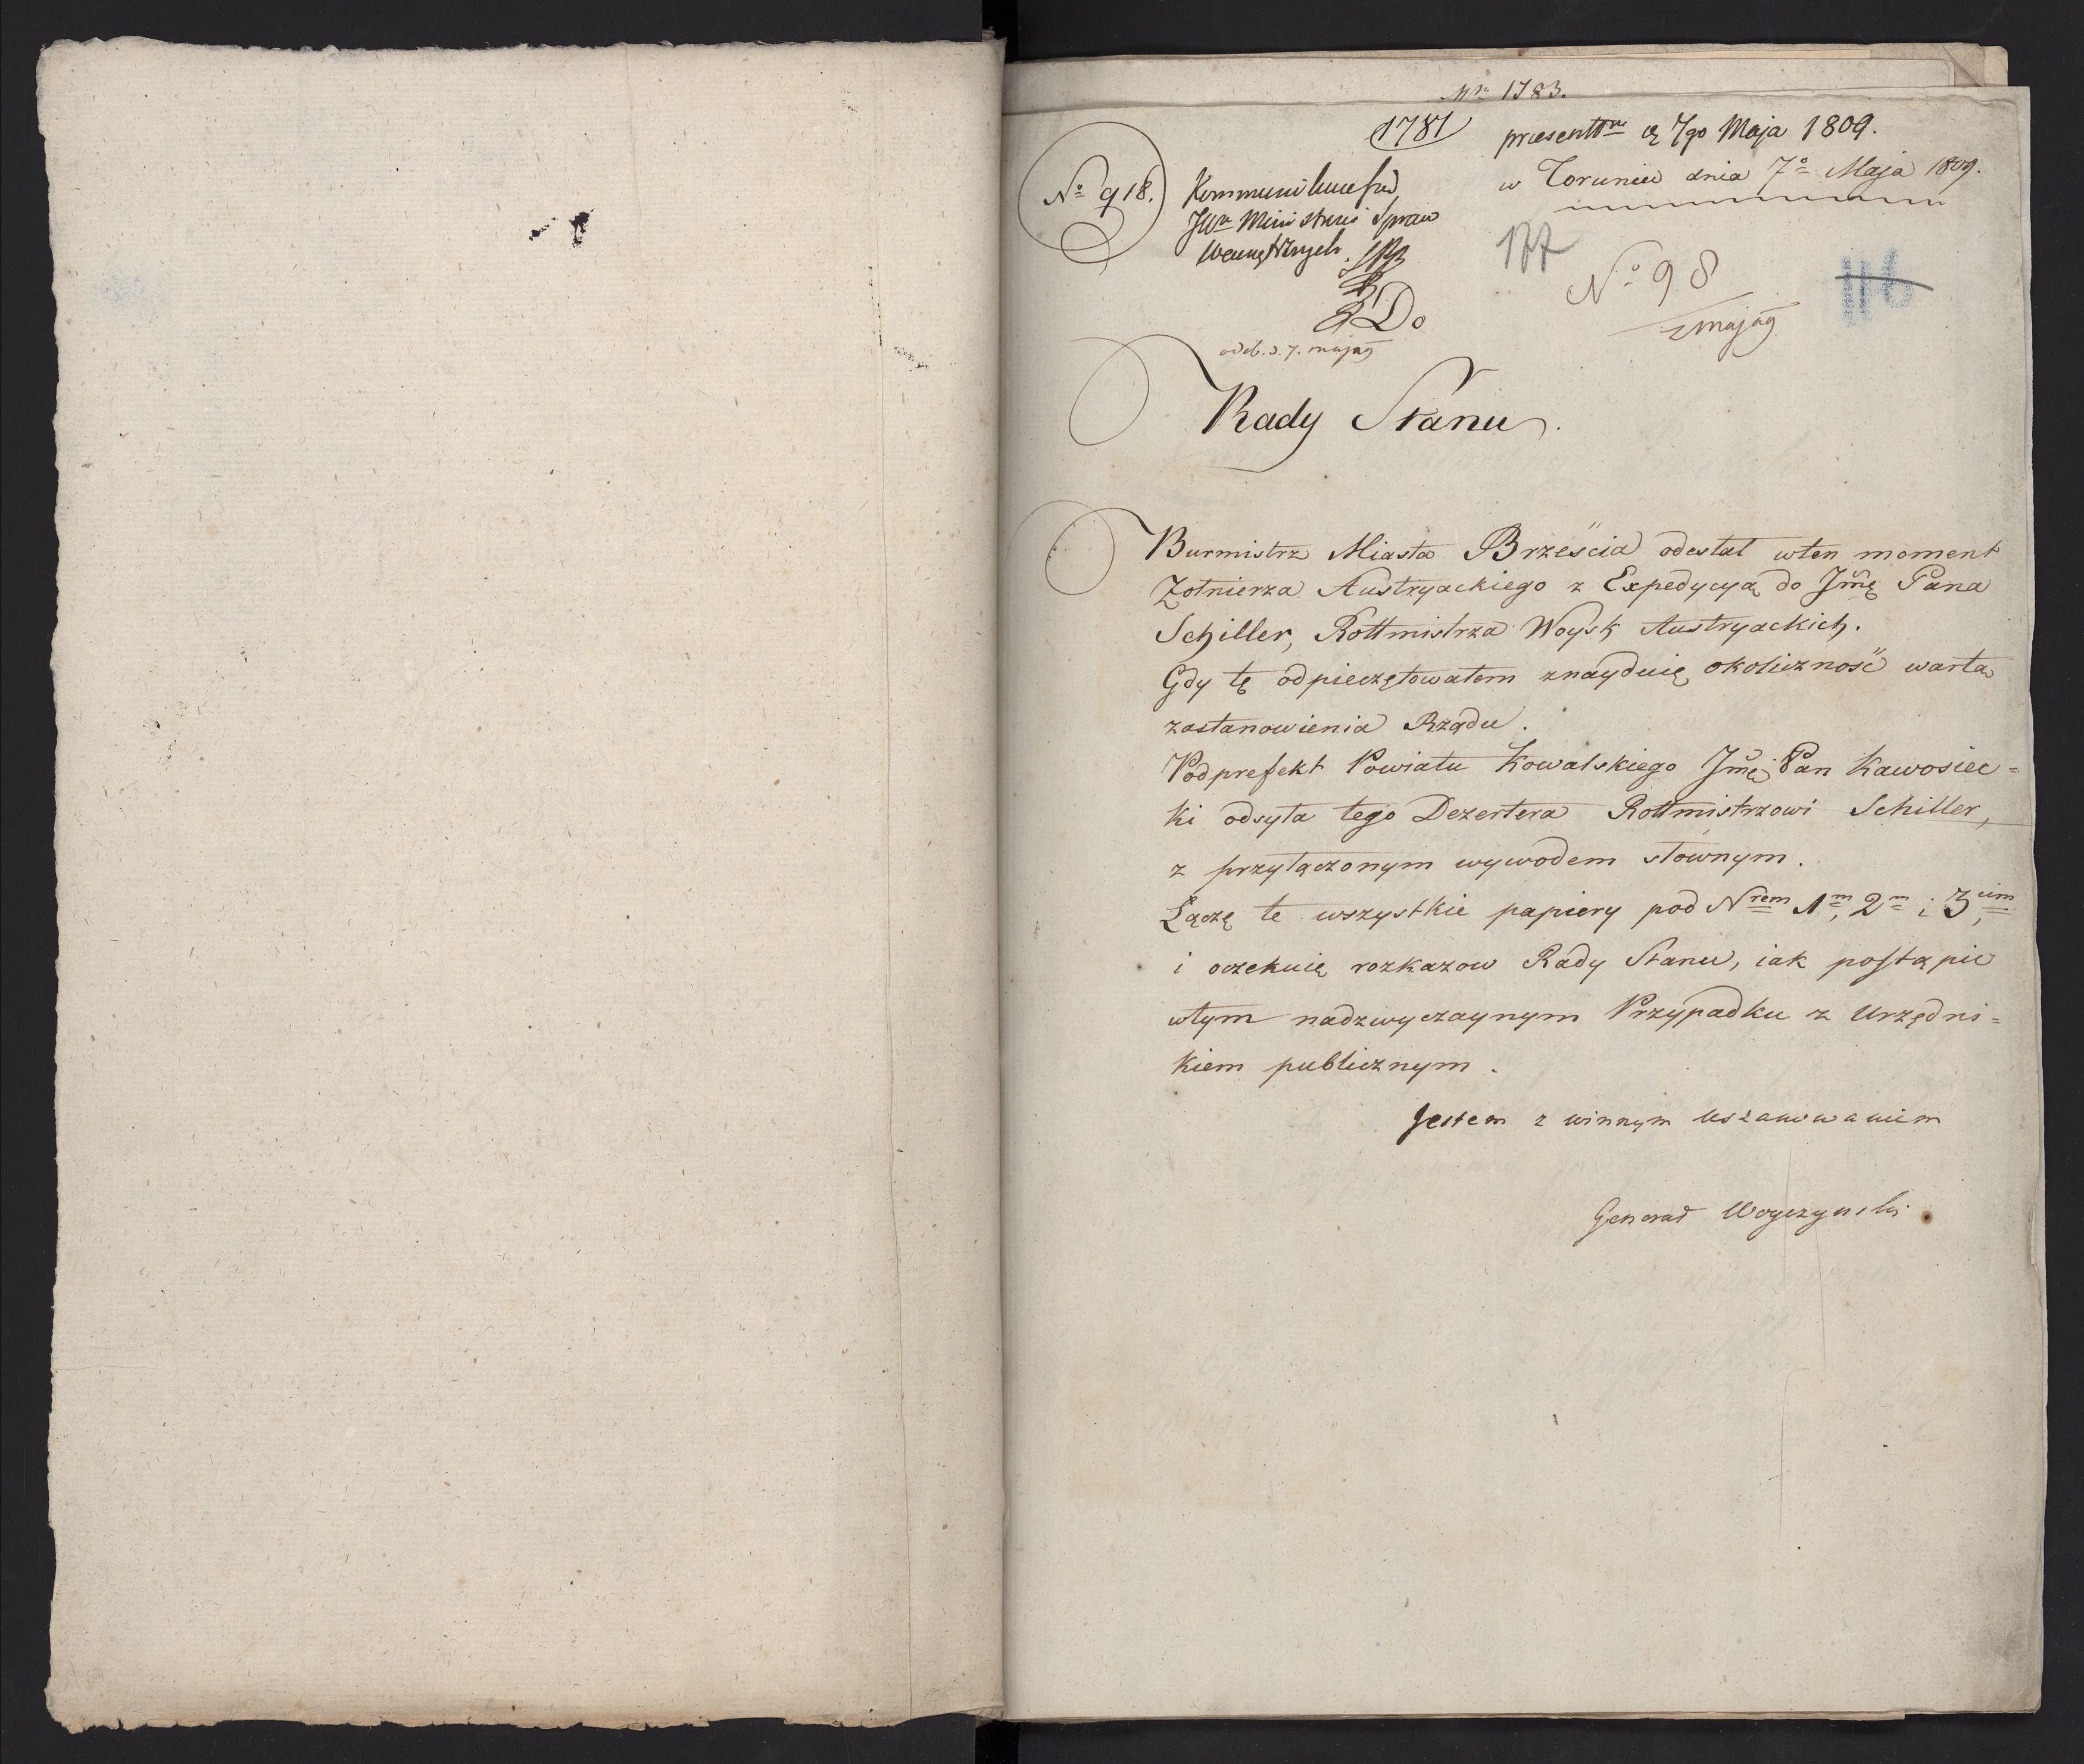 Nr 1783.
1781
præsenttm d 7go Maja 1809.
w Toruniu dnia 7o Maja 1809.
No 918.
JWu Ministrowi Spraw
Wewnętrznych.
177
No 98
116
z maja 9
Do
odeb. d. 7. maja 9
Rady Stanu.
Burmistrz Miasta Brześcia odesłał wten moment
Żołnierza Austryackiego z Expedycyą do Jmę Pana
Schiller, Rottmistrza Woysk Austryackich.
Gdy tę odpieczętowałem znayduię okoliczność warta
zastanowienia Rządu.
Podprefekt Powiatu Kowalskiego Jmę Pan Kawosiec=
ki odsyła tego Dezertera Rottmistrzowi Schiller,
z przyłączonym wywodem słownym.
Łączę te wszystkie papiery pod Nrem 1m, 2m i 3cim,
i oczekuię rozkazow Rady Stanu, iak postąpić
wtym nadzwyczaynym Przypadku z Urzędni=
kiem publicznym.
Jestem z winnym Uszanowaniem
Generał Woyczynski